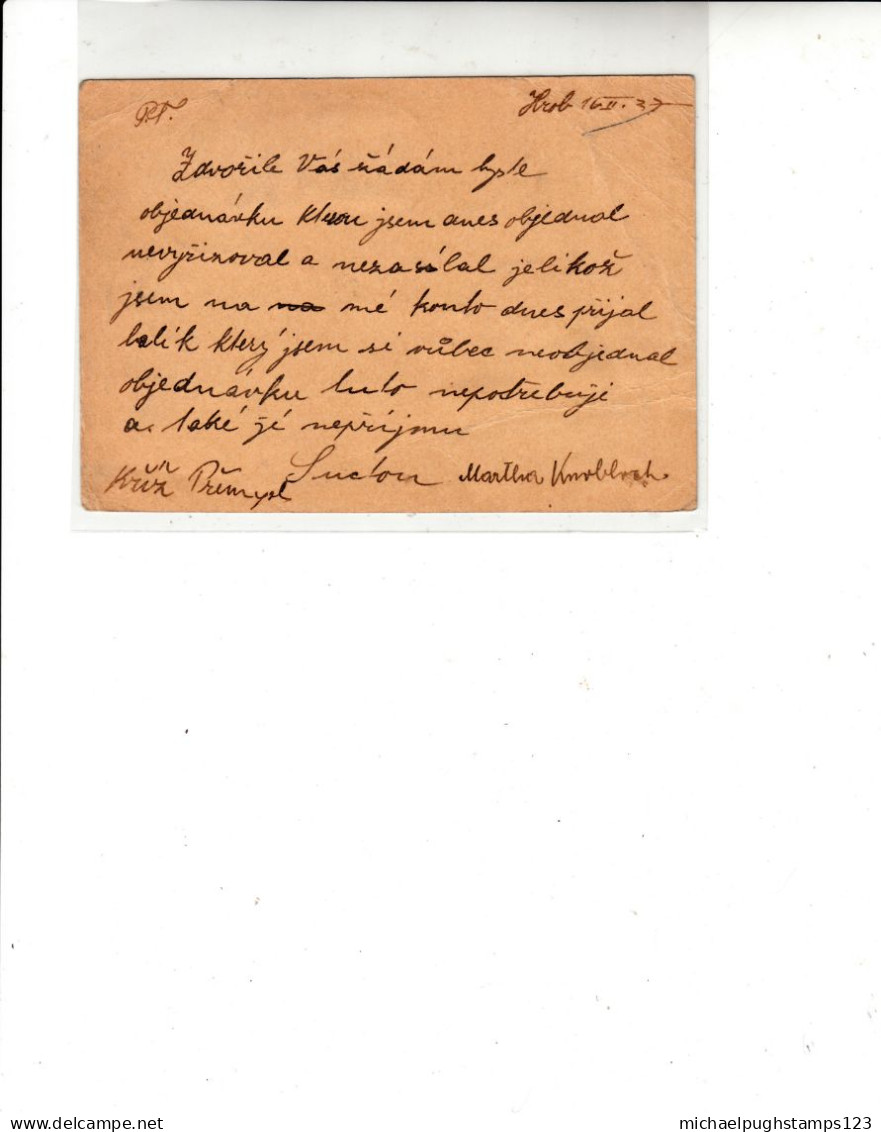 P.T. Hrob 16.II.37
Zdvořile Vás žádám byste
objednávku kterou jsem dnes objednal
nevyřizoval a nezasílal jelikož
jsem na na mé konto dnes přijal
balík který jsem si vůbec neobjednal
objednávku tuto nepotřebuji
a také jé nepříjmu
Kříž Přemysl Martha Knobloch
michaelpughstamps123